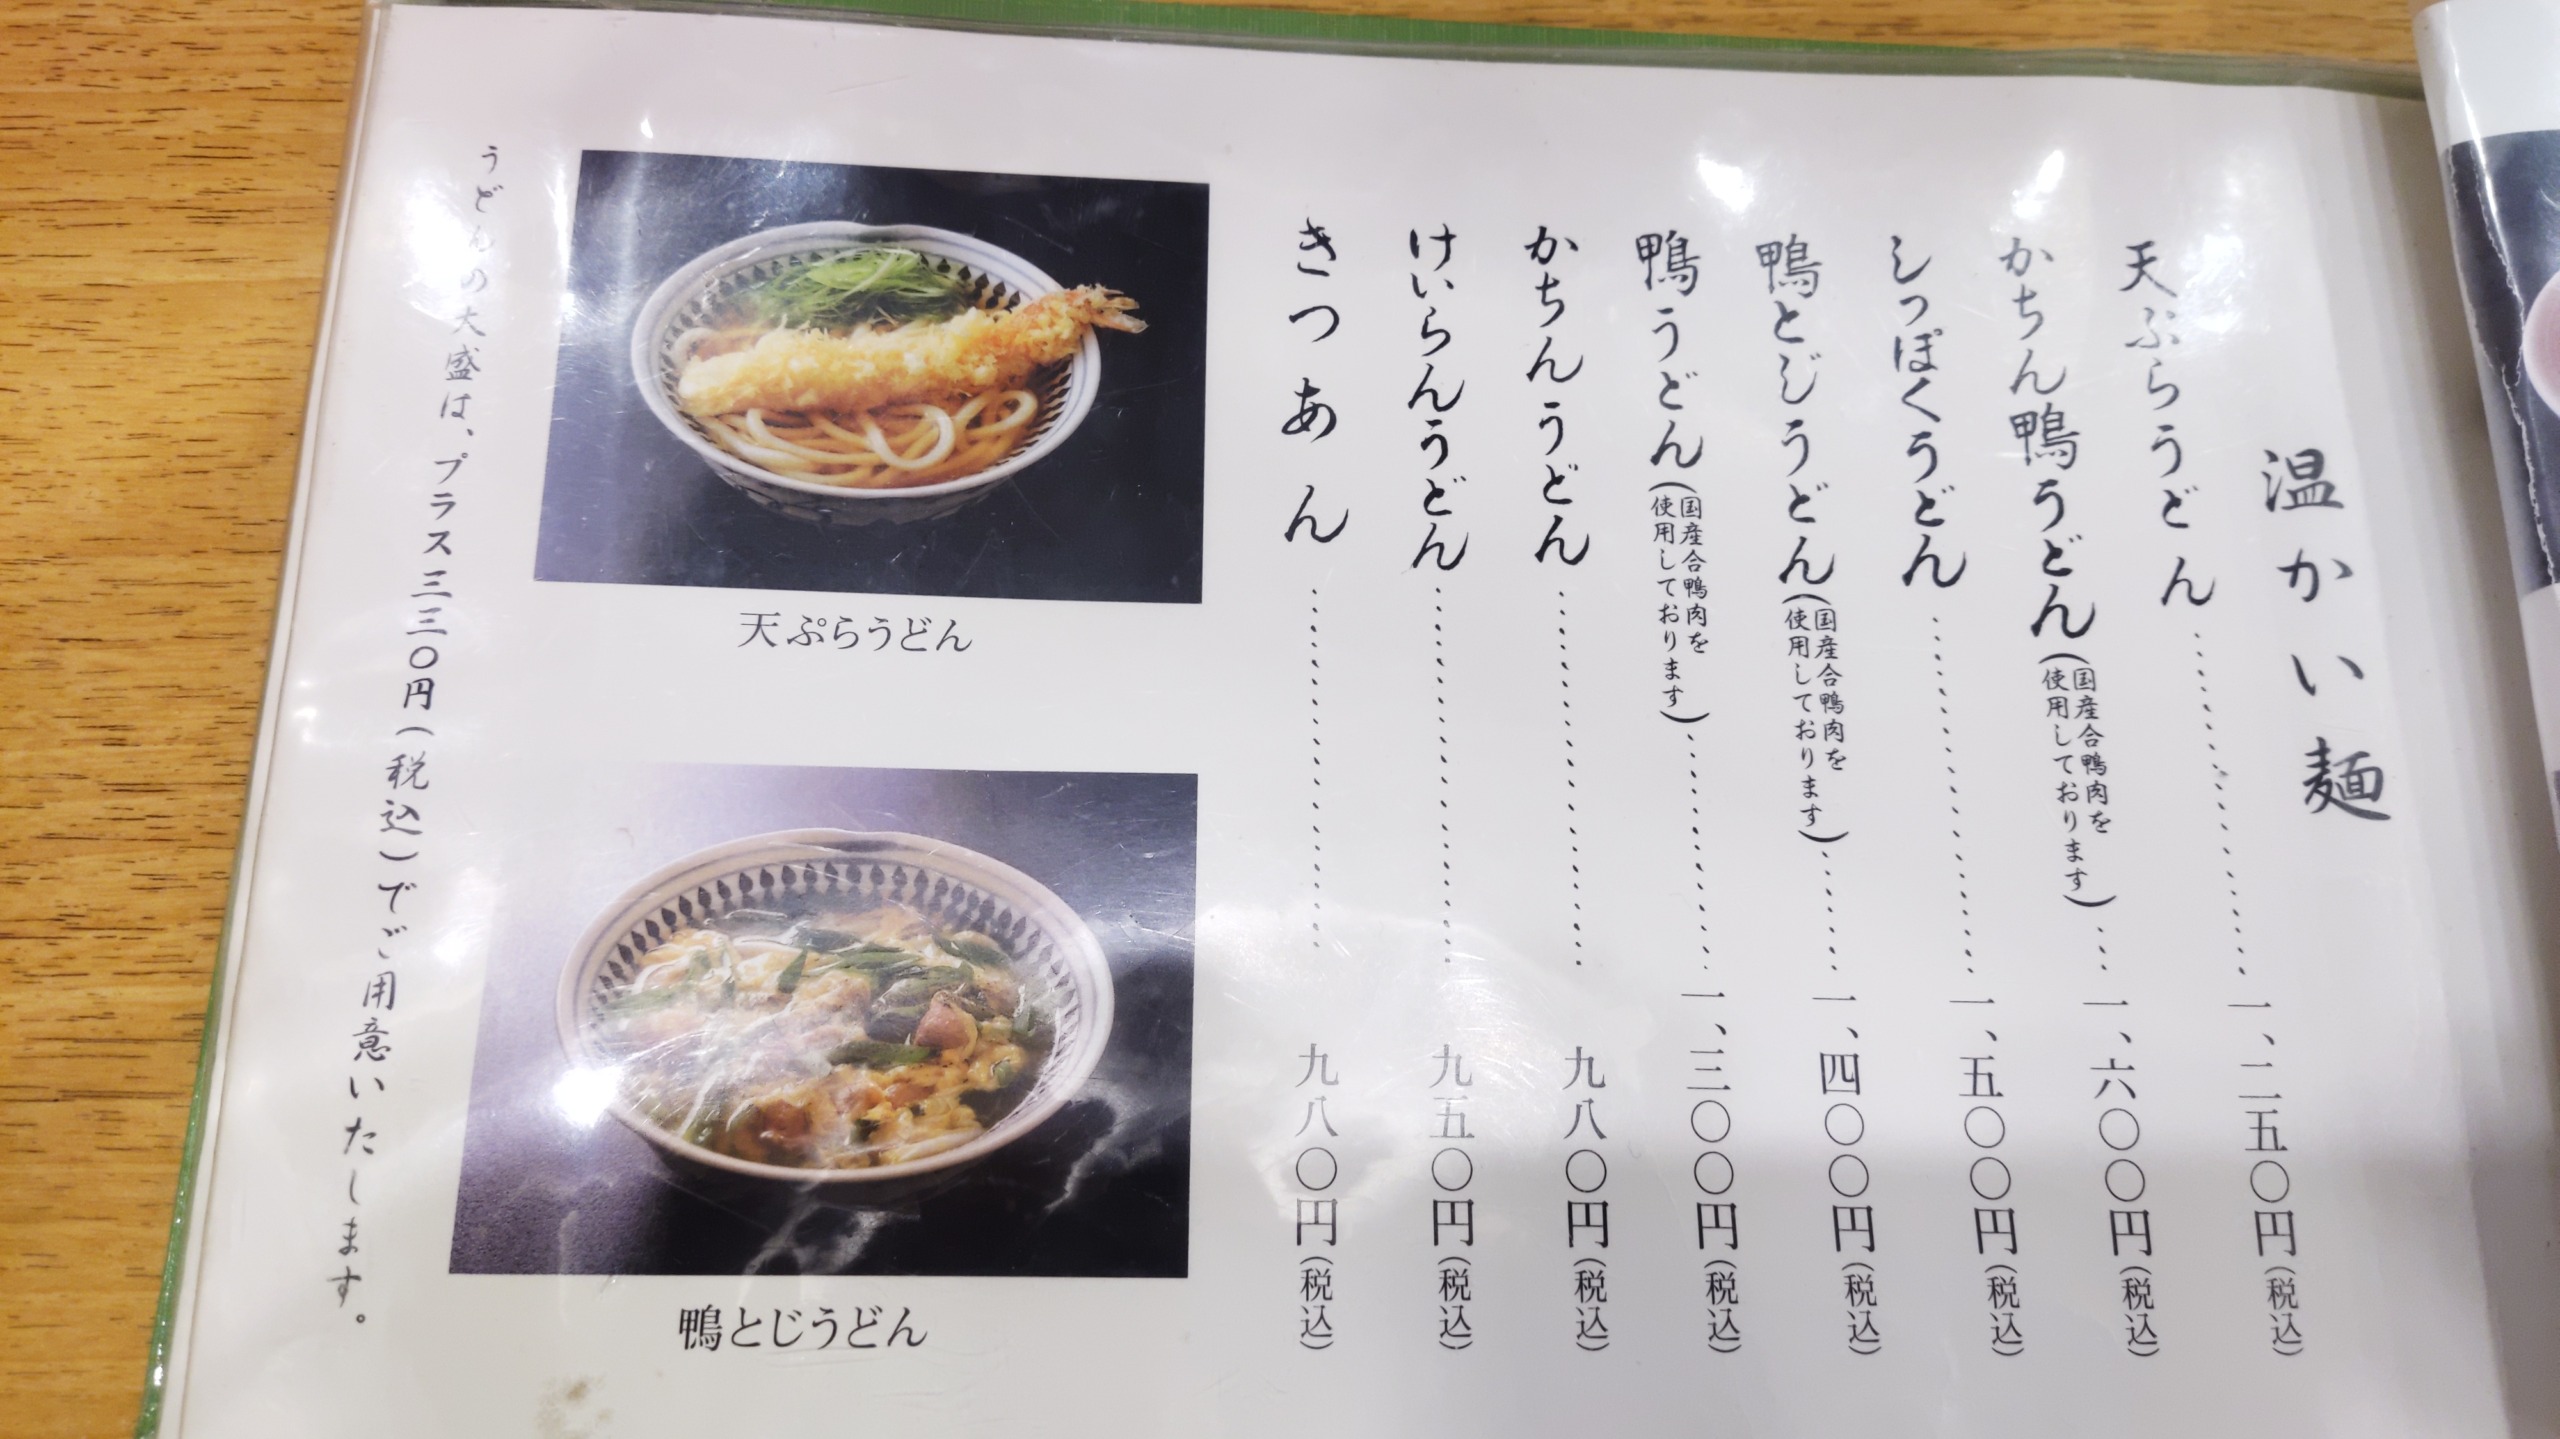 温かい麺
天ぷらうどん……………一、二五〇円(税込)
かちん鴨うどん(国産合鴨肉を使用しております)…一、六〇〇円(税込)
しっぽくうどん……………一、五〇〇円(税込)
鴨とじうどん(国産合鴨肉を使用しております)……一、四〇〇円(税込)
鴨うどん(国産合鴨肉を使用しております)…………一、三〇〇円(税込)
かちんうどん……………九八〇円(税込)
けいらんうどん……………九五〇円(税込)
きつあん……………九八〇円(税込)
天ぷらうどん
鴨とじうどん
うどんの大盛は、プラス三三〇円(税込)でご用意いたします。